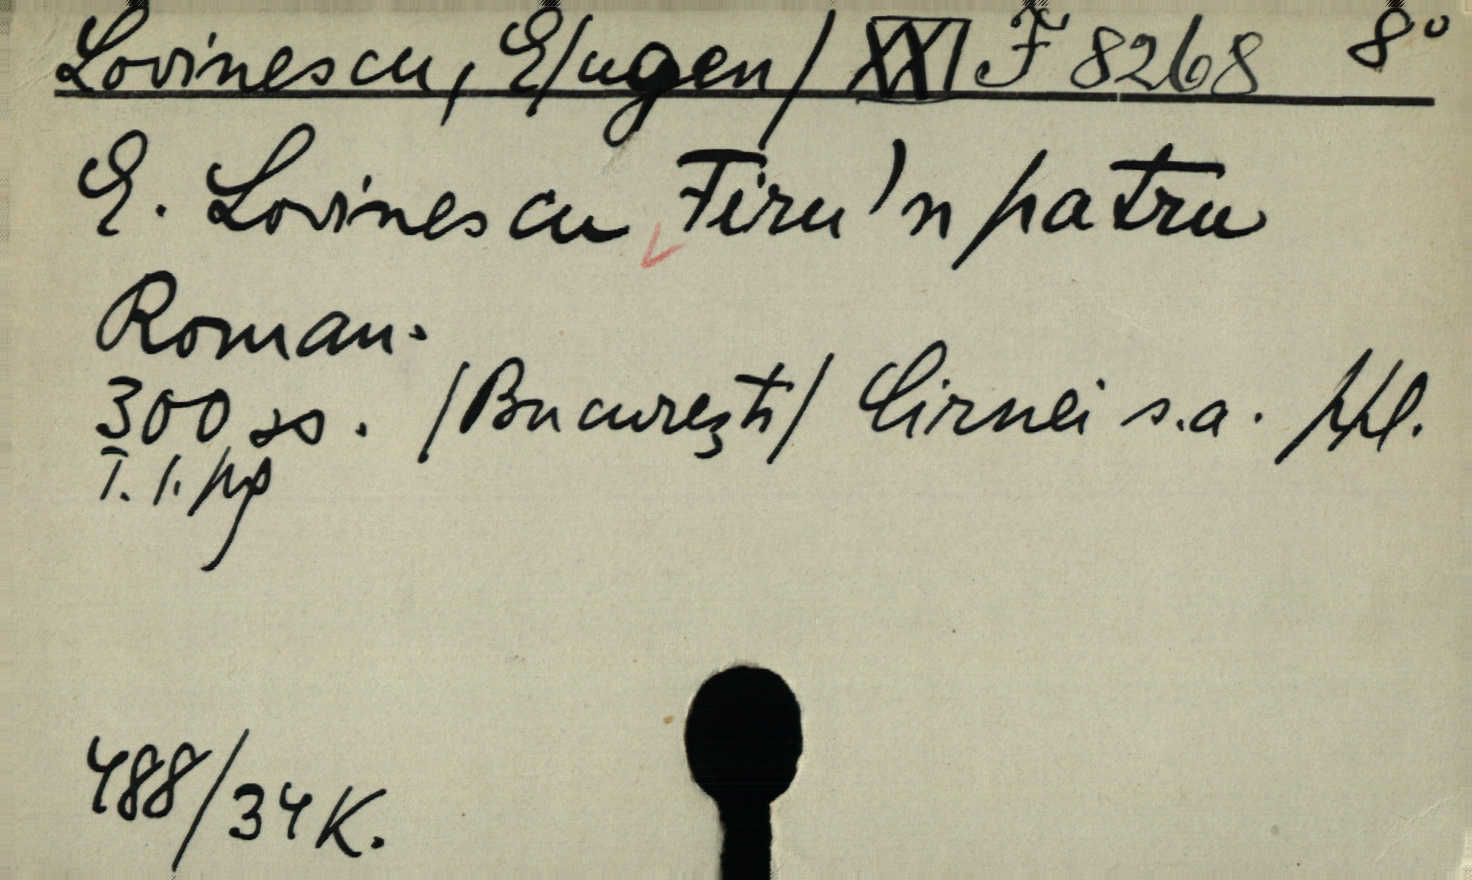 Lovinescu, E/ugen/ XXI F 8268 8°
E. Lovinescu Firu 'n patru
Roman.
300 ss. /Bucureşti/ Cirnei s.a.
T. 1. pg
488/34 K.